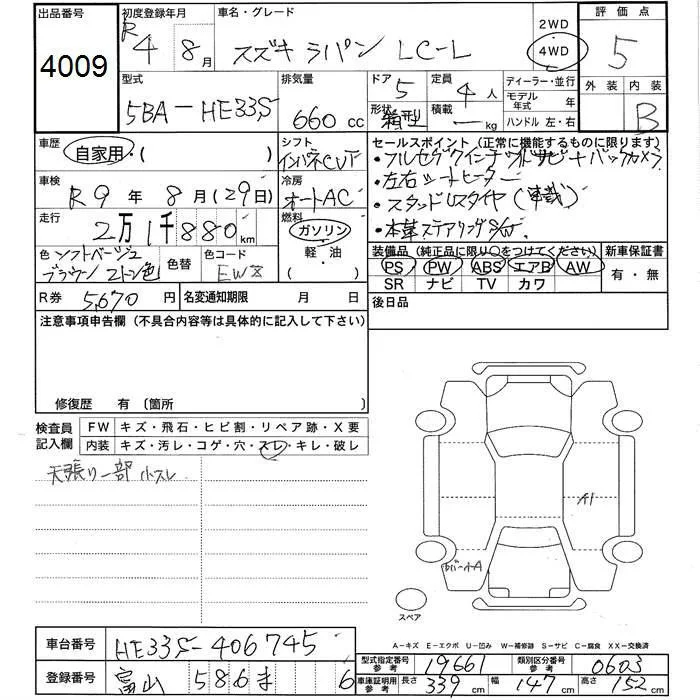 出品番号
4009
初度登録年月
R 4 8月
車名・グレード
スズキ ラパン LC-L
2WD
4WD
評価点
5
外装 内装
B
型式
5BA-HE33S
排気量
660 cc
ドア
5
形状
箱型
定員
4人
積載
ー kg
ディーラー・並行
モデル年式 年
ハンドル 左・右
車歴
自家用・( )
シフト
インパネCVT
セールスポイント (正常に機能するものに限ります)
・フルセグ
バックカメラ
・左右シートヒーター
・スタッドレスタイヤ(車載)
・本革ステアリング
車検
R9年 8月(29日)
冷房
オートAC
走行
2万1千880km
燃料
ガソリン
軽・油
( )
色 ソフトベージュ
ブラウン 2トン色
色替
色コード
装備品(純正品に限り○をつけてください)
PS PW ABS エアB AW
SR ナビ TV カワ
新車保証書
有・無
R券 5,670円
名変通知期限 月 日
後日品
注意事項申告欄(不具合内容等は具体的に記入して下さい)
修復歴 有 〔箇所
検査員記入欄
FW キズ・飛石・ヒビ割・リペア跡・X要
内装 キズ・汚レ・コゲ・穴・スレ・キレ・破レ
天張り一部 小スレ
A1
スペア
A-キズ E-エクボ U-凹み W-補修跡 S-サビ C-腐食 XX-交換済
車台番号
HE33S-406745
登録番号
富山 586 6
型式指定番号参考
19661
類別区分番号参考
0603
車庫証明用参考
長さ 339cm 幅 147cm 高さ 152cm